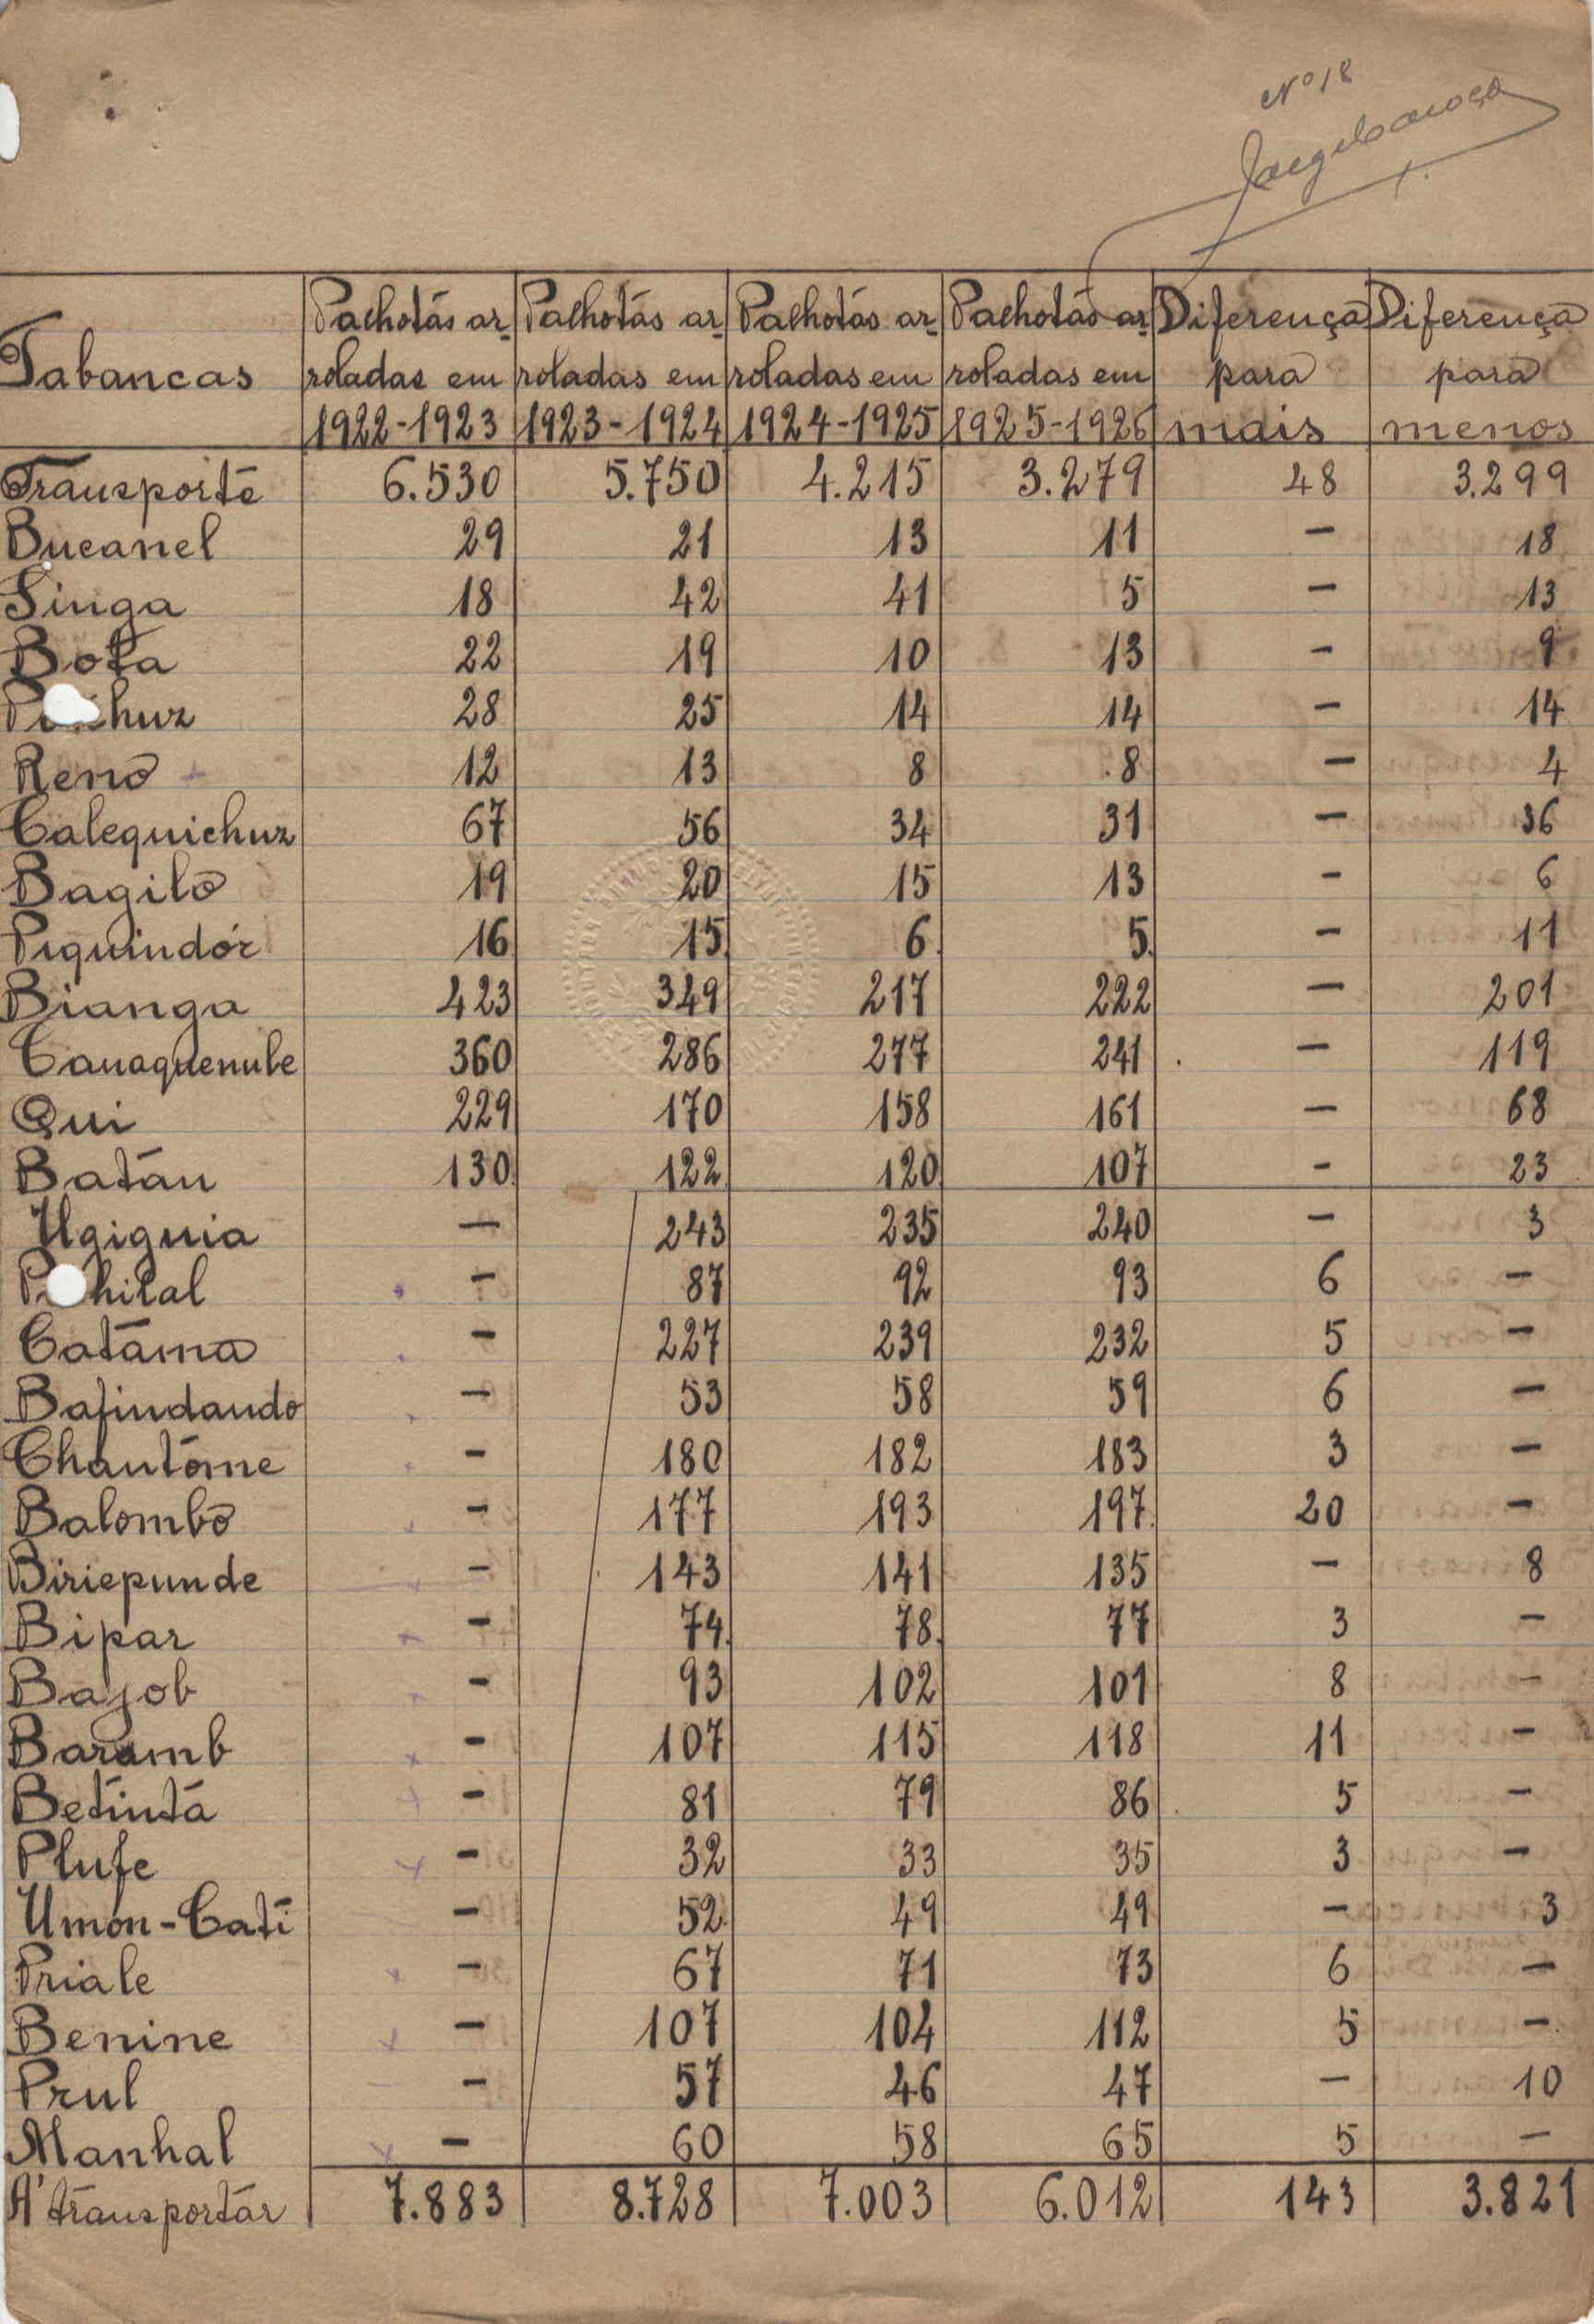 Nº 18
Tabancas Palhotas ar- Palhotas ar- Palhotas ar- Palhotas ar- Diferença Diferença
roladas em roladas em roladas em roladas em para para
1922-1923 1923-1924 1924-1925 1925-1926 mais menos
Transporte 6.530 5.750 4.215 3.279 48 3.299
Bucanel 29 21 13 11 — 18
Singa 18 42 41 5 — 13
Bota 22 19 10 13 — 9
28 25 14 14 — 14
Renó 12 13 8 8 — 4
Calequichuz 67 56 34 31 — 36
Bagiló 19 20 15 13 — 6
Piquindór 16 15 6 5 — 11
Bianga 423 349 217 222 — 201
Cauaquenule 360 286 277 241 — 119
Qui 229 170 158 161 — 68
Batáu 130 122 120 107 — 23
Ugiguia — 243 235 240 — 3
— 87 92 93 6 —
Catáma — 227 239 232 5 —
Bafindando — 53 58 59 6 —
Chantóme — 180 182 183 3 —
Balombó — 177 193 197 20 —
Biriepunde — 143 141 135 — 8
Bipar — 74 78 77 3 —
Bajob — 93 102 101 8 —
Baramb — 107 115 118 11 —
Betintá — 81 79 86 5 —
Plufe — 32 33 35 3 —
Umón-Cati — 52 49 49 — 3
Priale — 67 71 73 6 —
Benine — 107 104 112 5 —
Prul — 57 46 47 — 10
Manhal — 60 58 65 5 —
A' transportár 7.883 8.728 7.003 6.012 143 3.821